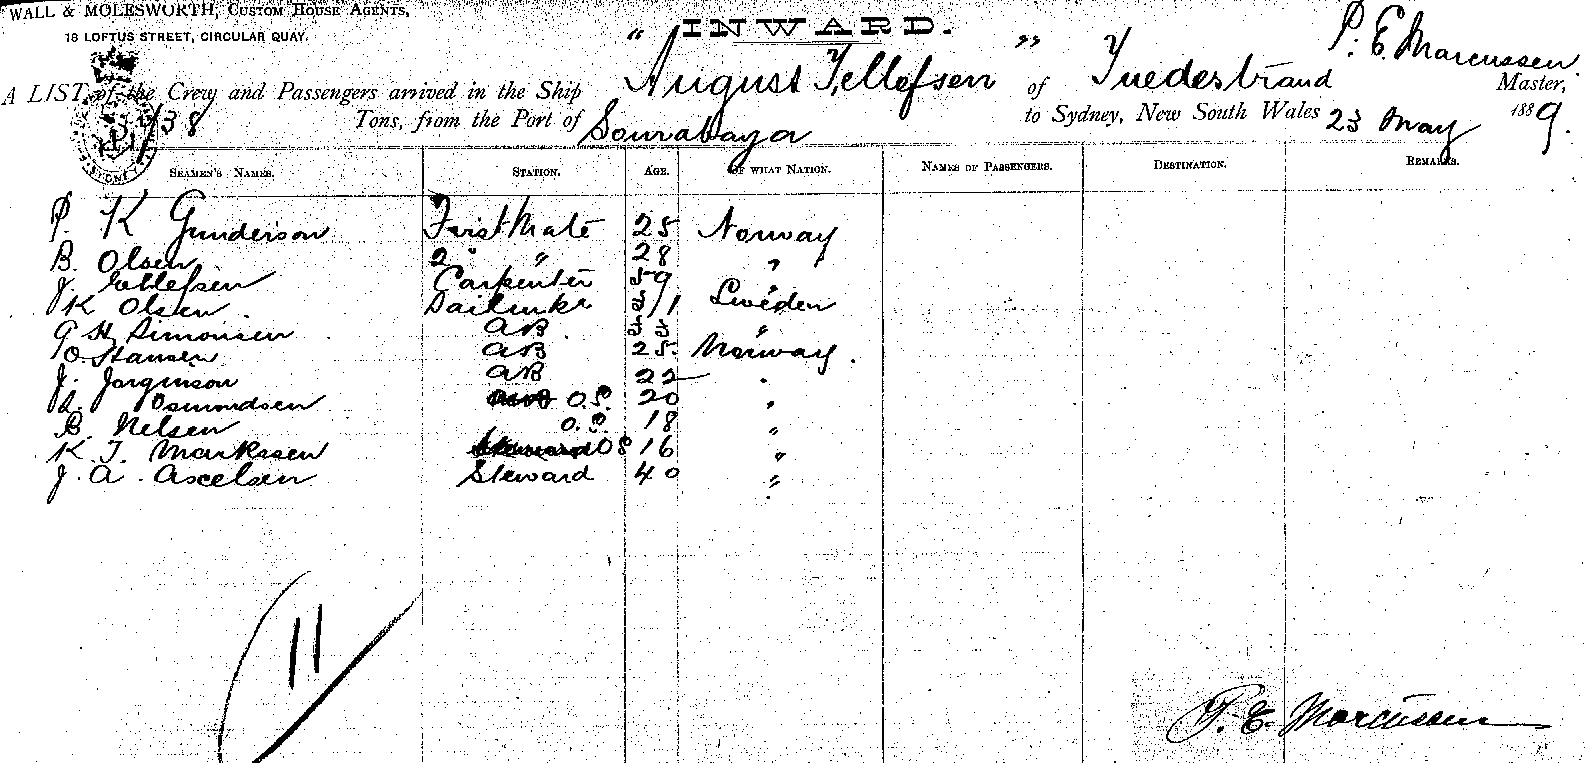 WALL & MOLESWORTH, CUSTOM HOUSE AGENTS,
18 LOFTUS STREET, CIRCULAR QUAY.
INWARD.
P. E. Marcussen
A LIST of the Crew and Passengers arrived in the Ship "August Tellefsen" of Tvedestrand Master,
538 Tons, from the Port of Sourabaya to Sydney, New South Wales 23 May 1889.
SEAMEN'S NAMES. STATION. AGE. OF WHAT NATION. NAMES OF PASSENGERS. DESTINATION. REMARKS.
P. K Gunderson First Mate 25 Norway
B. Olsen 2 " 28 "
J. Carpenter 59 "
K Olsen Sailmkr Sweden
G H Simonsen AB "
O. Hansen AB 25 Norway.
J. Jorginson AB 22 "
Osmondsen O.S. 20 "
B. Nelsen O.S. 18 "
K. T. Markssen OS 16 "
J. A. Ascelsen Steward 40 "
11
P. E. Marcussen